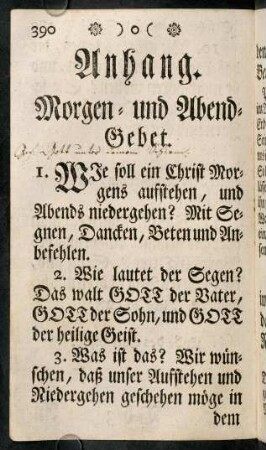 390 ※ ) o ( ※
Anhang.
Morgen- und Abend-
Gebet.
1. WJe soll ein Christ Mor-
gens aufstehen, und
Abends niedergehen? Mit Se-
gnen, Dancken, Beten und An-
befehlen.
2. Wie lautet der Segen?
Das walt GOTT der Vater,
GOTT der Sohn, und GOTT
der heilige Geist.
3. Was ist das? Wir wün-
schen, daß unser Aufstehen und
Niedergehen geschehen möge in
dem